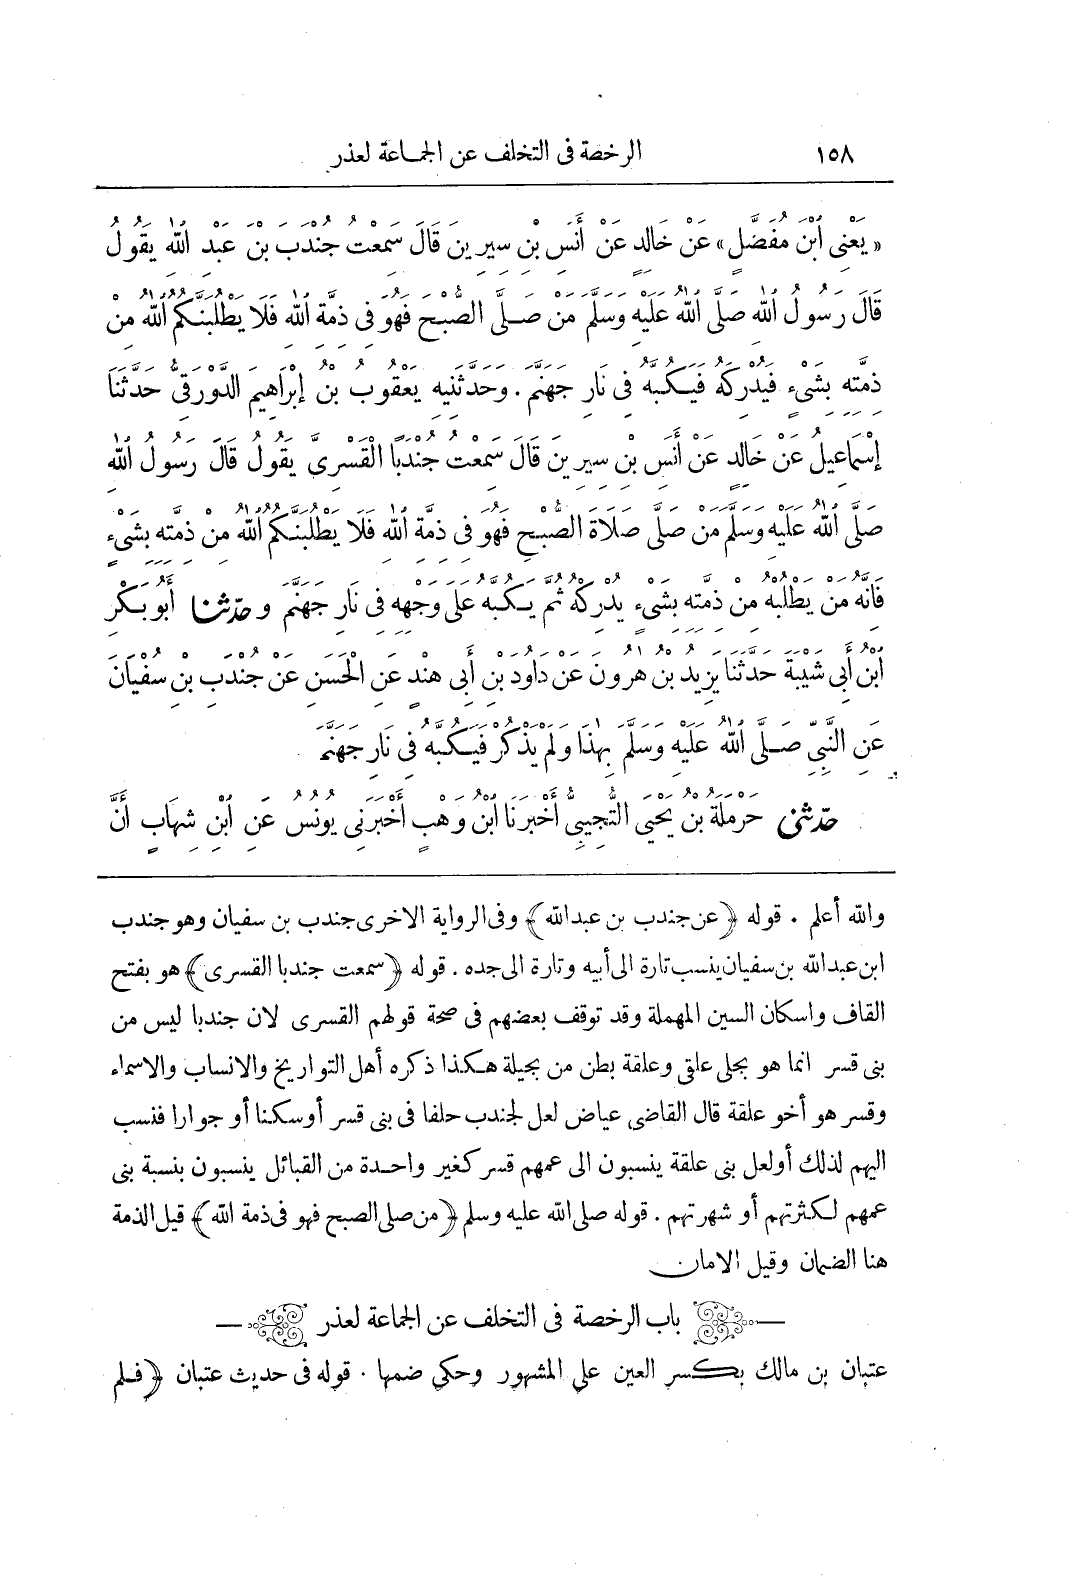 ١٥٨ الرخصة فى التخلف عن الجماعة لعذر
«يَعْنِى ٱبْنَ مُفَضَّلٍ» عَنْ خَالِدٍ عَنْ أَنَسِ بْنِ سِيرِينَ قَالَ سَمِعْتُ جُنْدَبَ بْنَ عَبْدِ ٱللهِ يَقُولُ
قَالَ رَسُولُ ٱللهِ صَلَّى ٱللهُ عَلَيْهِ وَسَلَّمَ مَنْ صَلَّى الصُّبْحَ فَهُوَ فِى ذِمَّةِ ٱللهِ فَلَا يَطْلُبَنَّكُمُ ٱللهُ مِنْ
ذِمَّتِهِ بِشَىْءٍ فَيُدْرِكَهُ فَيَكُبَّهُ فِى نَارِ جَهَنَّمَ. وَحَدَّثَنِيهِ يَعْقُوبُ بْنُ إِبْرَاهِيمَ الدَّوْرَقِىُّ حَدَّثَنَا
إِسْمَاعِيلُ عَنْ خَالِدٍ عَنْ أَنَسِ بْنِ سِيرِينَ قَالَ سَمِعْتُ جُنْدَبًا الْقَسْرِىَّ يَقُولُ قَالَ رَسُولُ ٱللهِ
صَلَّى ٱللهُ عَلَيْهِ وَسَلَّمَ مَنْ صَلَّى صَلَاةَ الصُّبْحِ فَهُوَ فِى ذِمَّةِ ٱللهِ فَلَا يَطْلُبَنَّكُمُ ٱللهُ مِنْ ذِمَّتِهِ بِشَىْءٍ
فَإِنَّهُ مَنْ يَطْلُبْهُ مِنْ ذِمَّتِهِ بِشَىْءٍ يُدْرِكْهُ ثُمَّ يَكُبَّهُ عَلَى وَجْهِهِ فِى نَارِ جَهَنَّمَ و حَدَّثَنَا أَبُو بَكْرِ
ٱبْنُ أَبِى شَيْبَةَ حَدَّثَنَا يَزِيدُ بْنُ هٰرُونَ عَنْ دَاوُدَ بْنِ أَبِى هِنْدٍ عَنِ الْحَسَنِ عَنْ جُنْدَبِ بْنِ سُفْيَانَ
عَنِ النَّبِىِّ صَلَّى ٱللهُ عَلَيْهِ وَسَلَّمَ بِهٰذَا وَلَمْ يَذْكُرْ فَيَكُبَّهُ فِى نَارِ جَهَنَّمَ
حَدَّثَنِى حَرْمَلَةُ بْنُ يَحْيَى التُّجِيبِىُّ أَخْبَرَنَا ٱبْنُ وَهْبٍ أَخْبَرَنِى يُونُسُ عَنِ ٱبْنِ شِهَابٍ أَنَّ
والله أعلم . قوله ﴿عن جندب بن عبدالله﴾ وفى الرواية الاخرى جندب بن سفيان وهو جندب
ابن عبدالله بن سفيان ينسب تارة الى أبيه وتارة الى جده . قوله ﴿سمعت جندبا القسرى﴾ هو بفتح
القاف واسكان السين المهملة وقد توقف بعضهم فى صحة قولهم القسرى لان جندبا ليس من
بنى قسر انما هو بجلى علقى وعلقة بطن من بجيلة هكذا ذكره أهل التواريخ والانساب والاسماء
وقسر هو أخو علقة قال القاضى عياض لعل لجندب حلفا فى بنى قسر أو سكنا أو جوارا فنسب
اليهم لذلك أو لعل بنى علقة ينسبون الى عمهم قسر كغير واحدة من القبائل ينسبون بنسبة بنى
عمهم لكثرتهم أو شهرتهم . قوله صلى الله عليه وسلم ﴿من صلى الصبح فهو فى ذمة الله﴾ قيل الذمة
هنا الضمان وقيل الامان
باب الرخصة فى التخلف عن الجماعة لعذر
عتبان بن مالك بكسر العين على المشهور وحكى ضمها . قوله فى حديث عتبان ﴿فلم